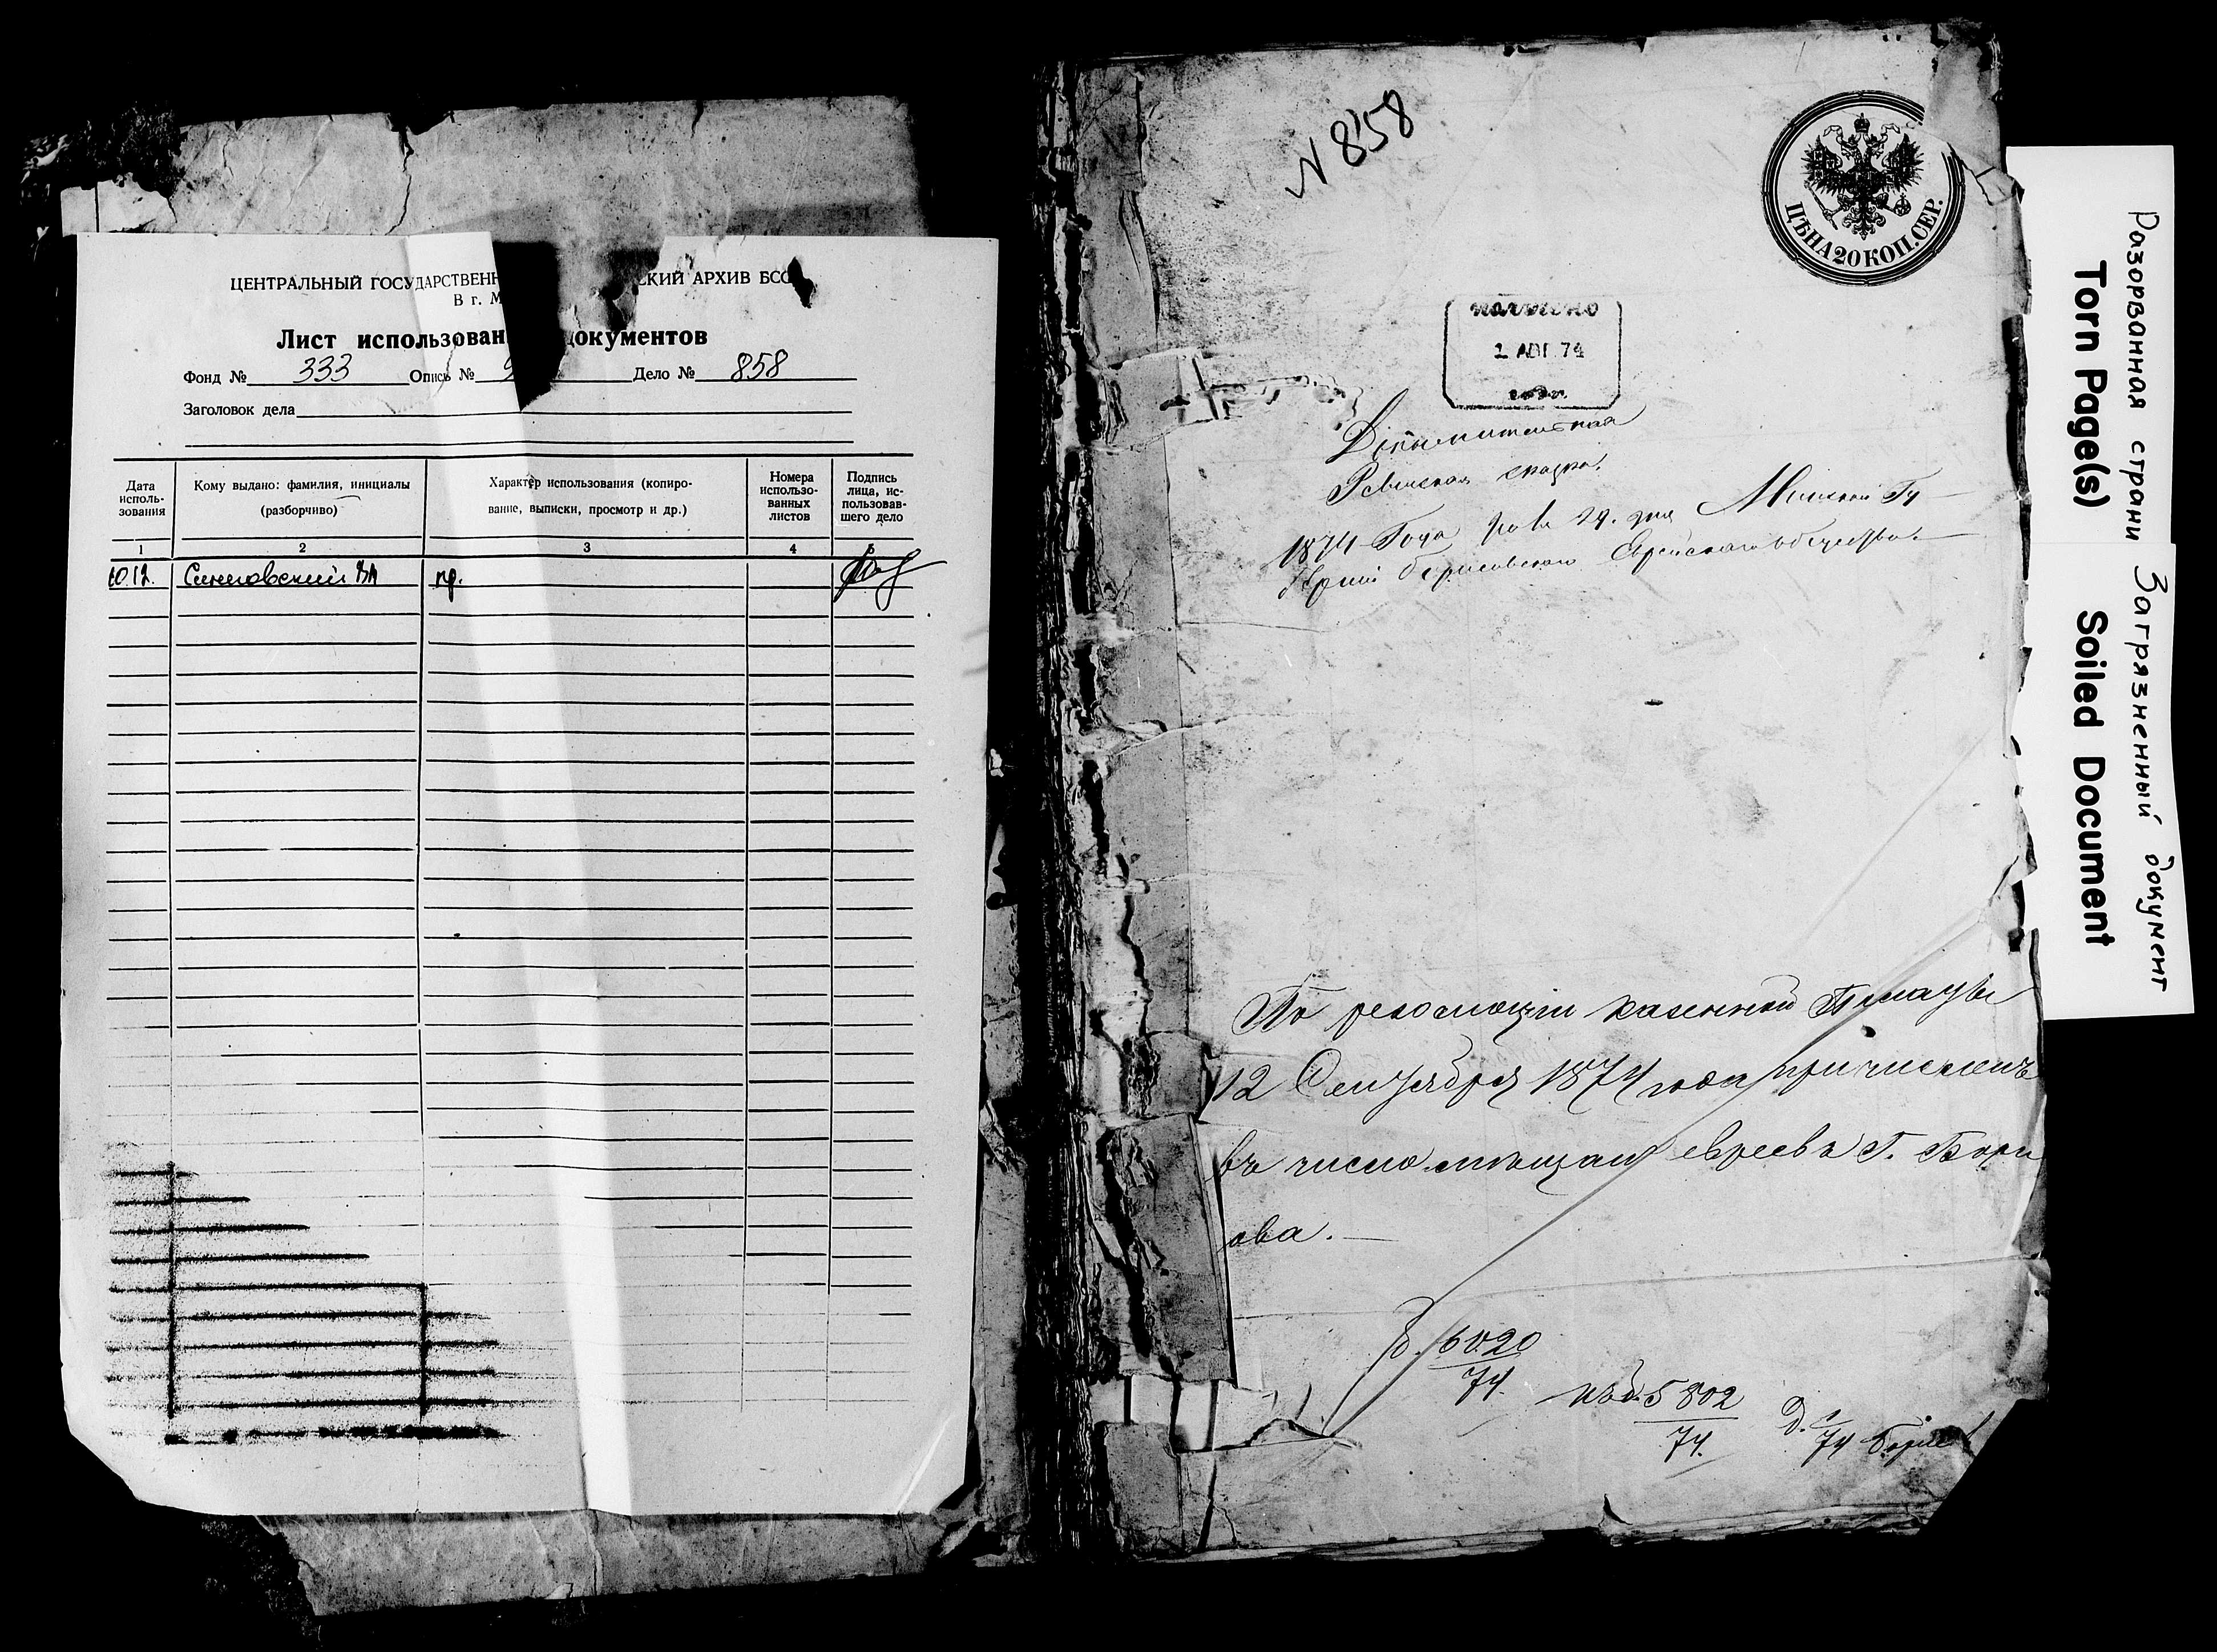 ЦЕНТРАЛЬНЫЙ ГОСУДАРСТВЕНН СКИЙ АРХИВ БСС
В г. М
Лист использован документов
Фонд № 333 Опись № 9 Дело № 858
Заголовок дела
Дата исполь-зования
Кому выдано: фамилия, инициалы
(разборчиво)
Характер использования (копиро-
вание, выписки, просмотр и др.)
Номера
использо-
ванных
листов
Подпись
лица, ис-
пользовав-
шего дело
1 2 3 4 5
10.12. пр.
N 858
ЦѢНА 20 КОП. СЕР.
1 АВГ. 74
Дополнительная
Ревизская сказка
1874 Года дня Минской Гу
Борисовского Еврейского общества.
По резолюціи казенной Палаты
12 Сентября 1874 года причисленъ
въ число мѣщанъ евреевъ Г. Бори
ова.
6020
74.
5802
74.
Д. 74 Борис
Разорванная страни
Torn Page(s)
Загрязненный документ
Soiled Document